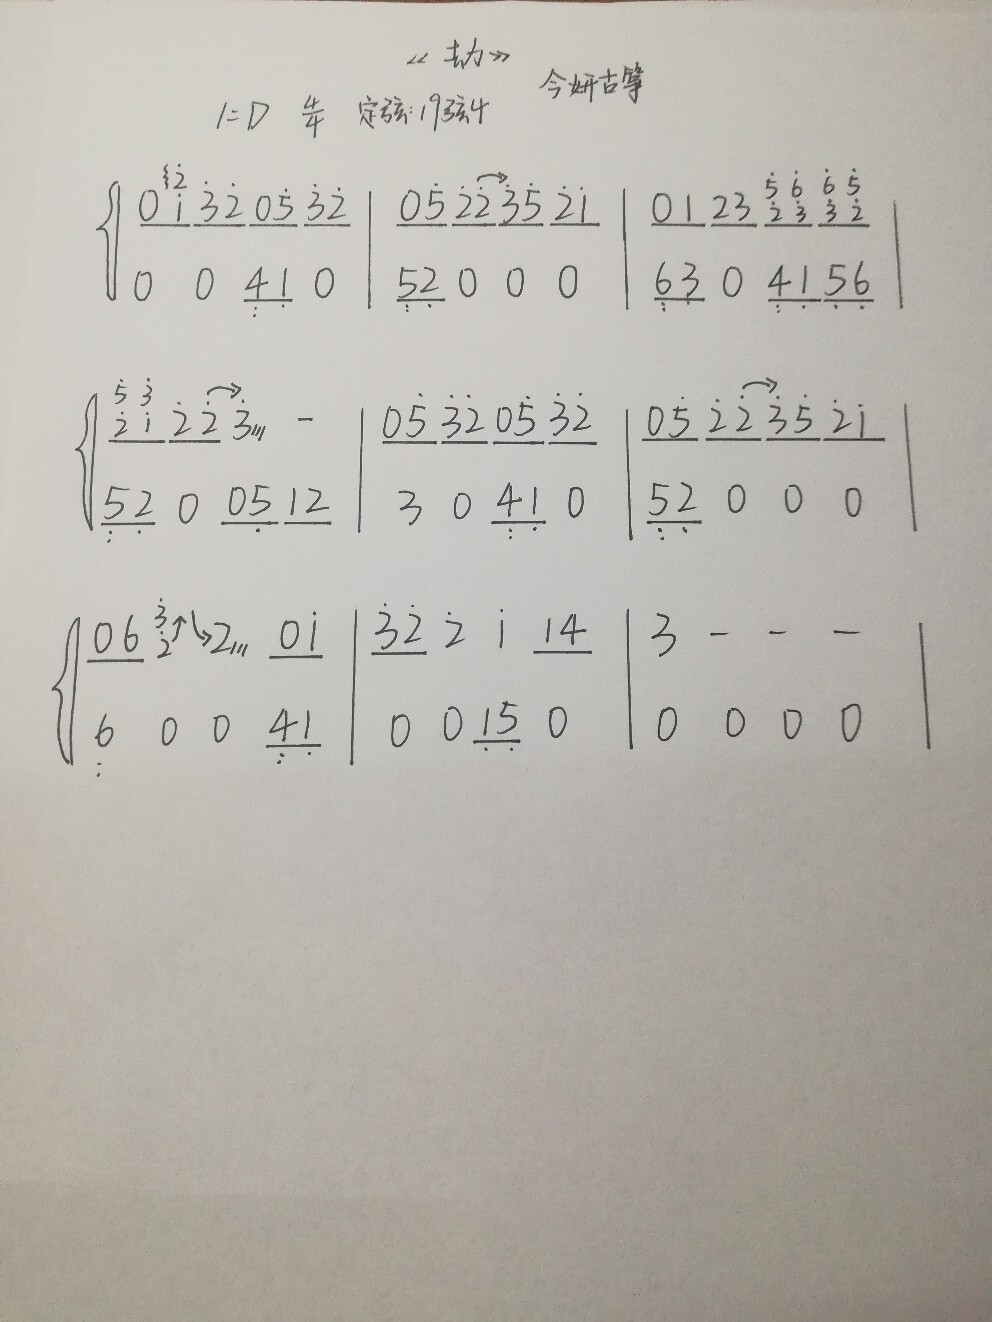 《劫》
今妍古筝
1=D 4/4 定弦:19弦4
0 2̇ i 3̇ 2̇ 0 5̇ 3̇ 2̇ | 0 5̇ 2̇ 2̇ 3̇ 5̇ 2̇ i | 0 1 2 3 5̇ 2̇ 6̇ 3̇ 6̇ 3̇ 5̇ 2̇ |
0 0 4̤ 1̣ 0 | 5̤ 2̣ 0 0 0 | 6̤ 3̣ 0 4̤ 1̣ 5̣ 6̣ |
5̇ 2̇ 3̇ i 2̇ 2̇ 3̇/// - | 0 5̇ 3̇ 2̇ 0 5̇ 3̇ 2̇ | 0 5̇ 2̇ 2̇ 3̇ 5̇ 2̇ i |
5̤ 2̣ 0 0 5̣ 1 2 | 3 0 4̤ 1̣ 0 | 5̤ 2̣ 0 0 0 |
0 6 3̇ 2̇ ↑ ↘ 2/// 0 i | 3̇ 2̇ 2̇ i 1 4 | 3 - - - |
6̤ 0 0 4̤ 1̣ | 0 0 1̣ 5̣ 0 | 0 0 0 0 |